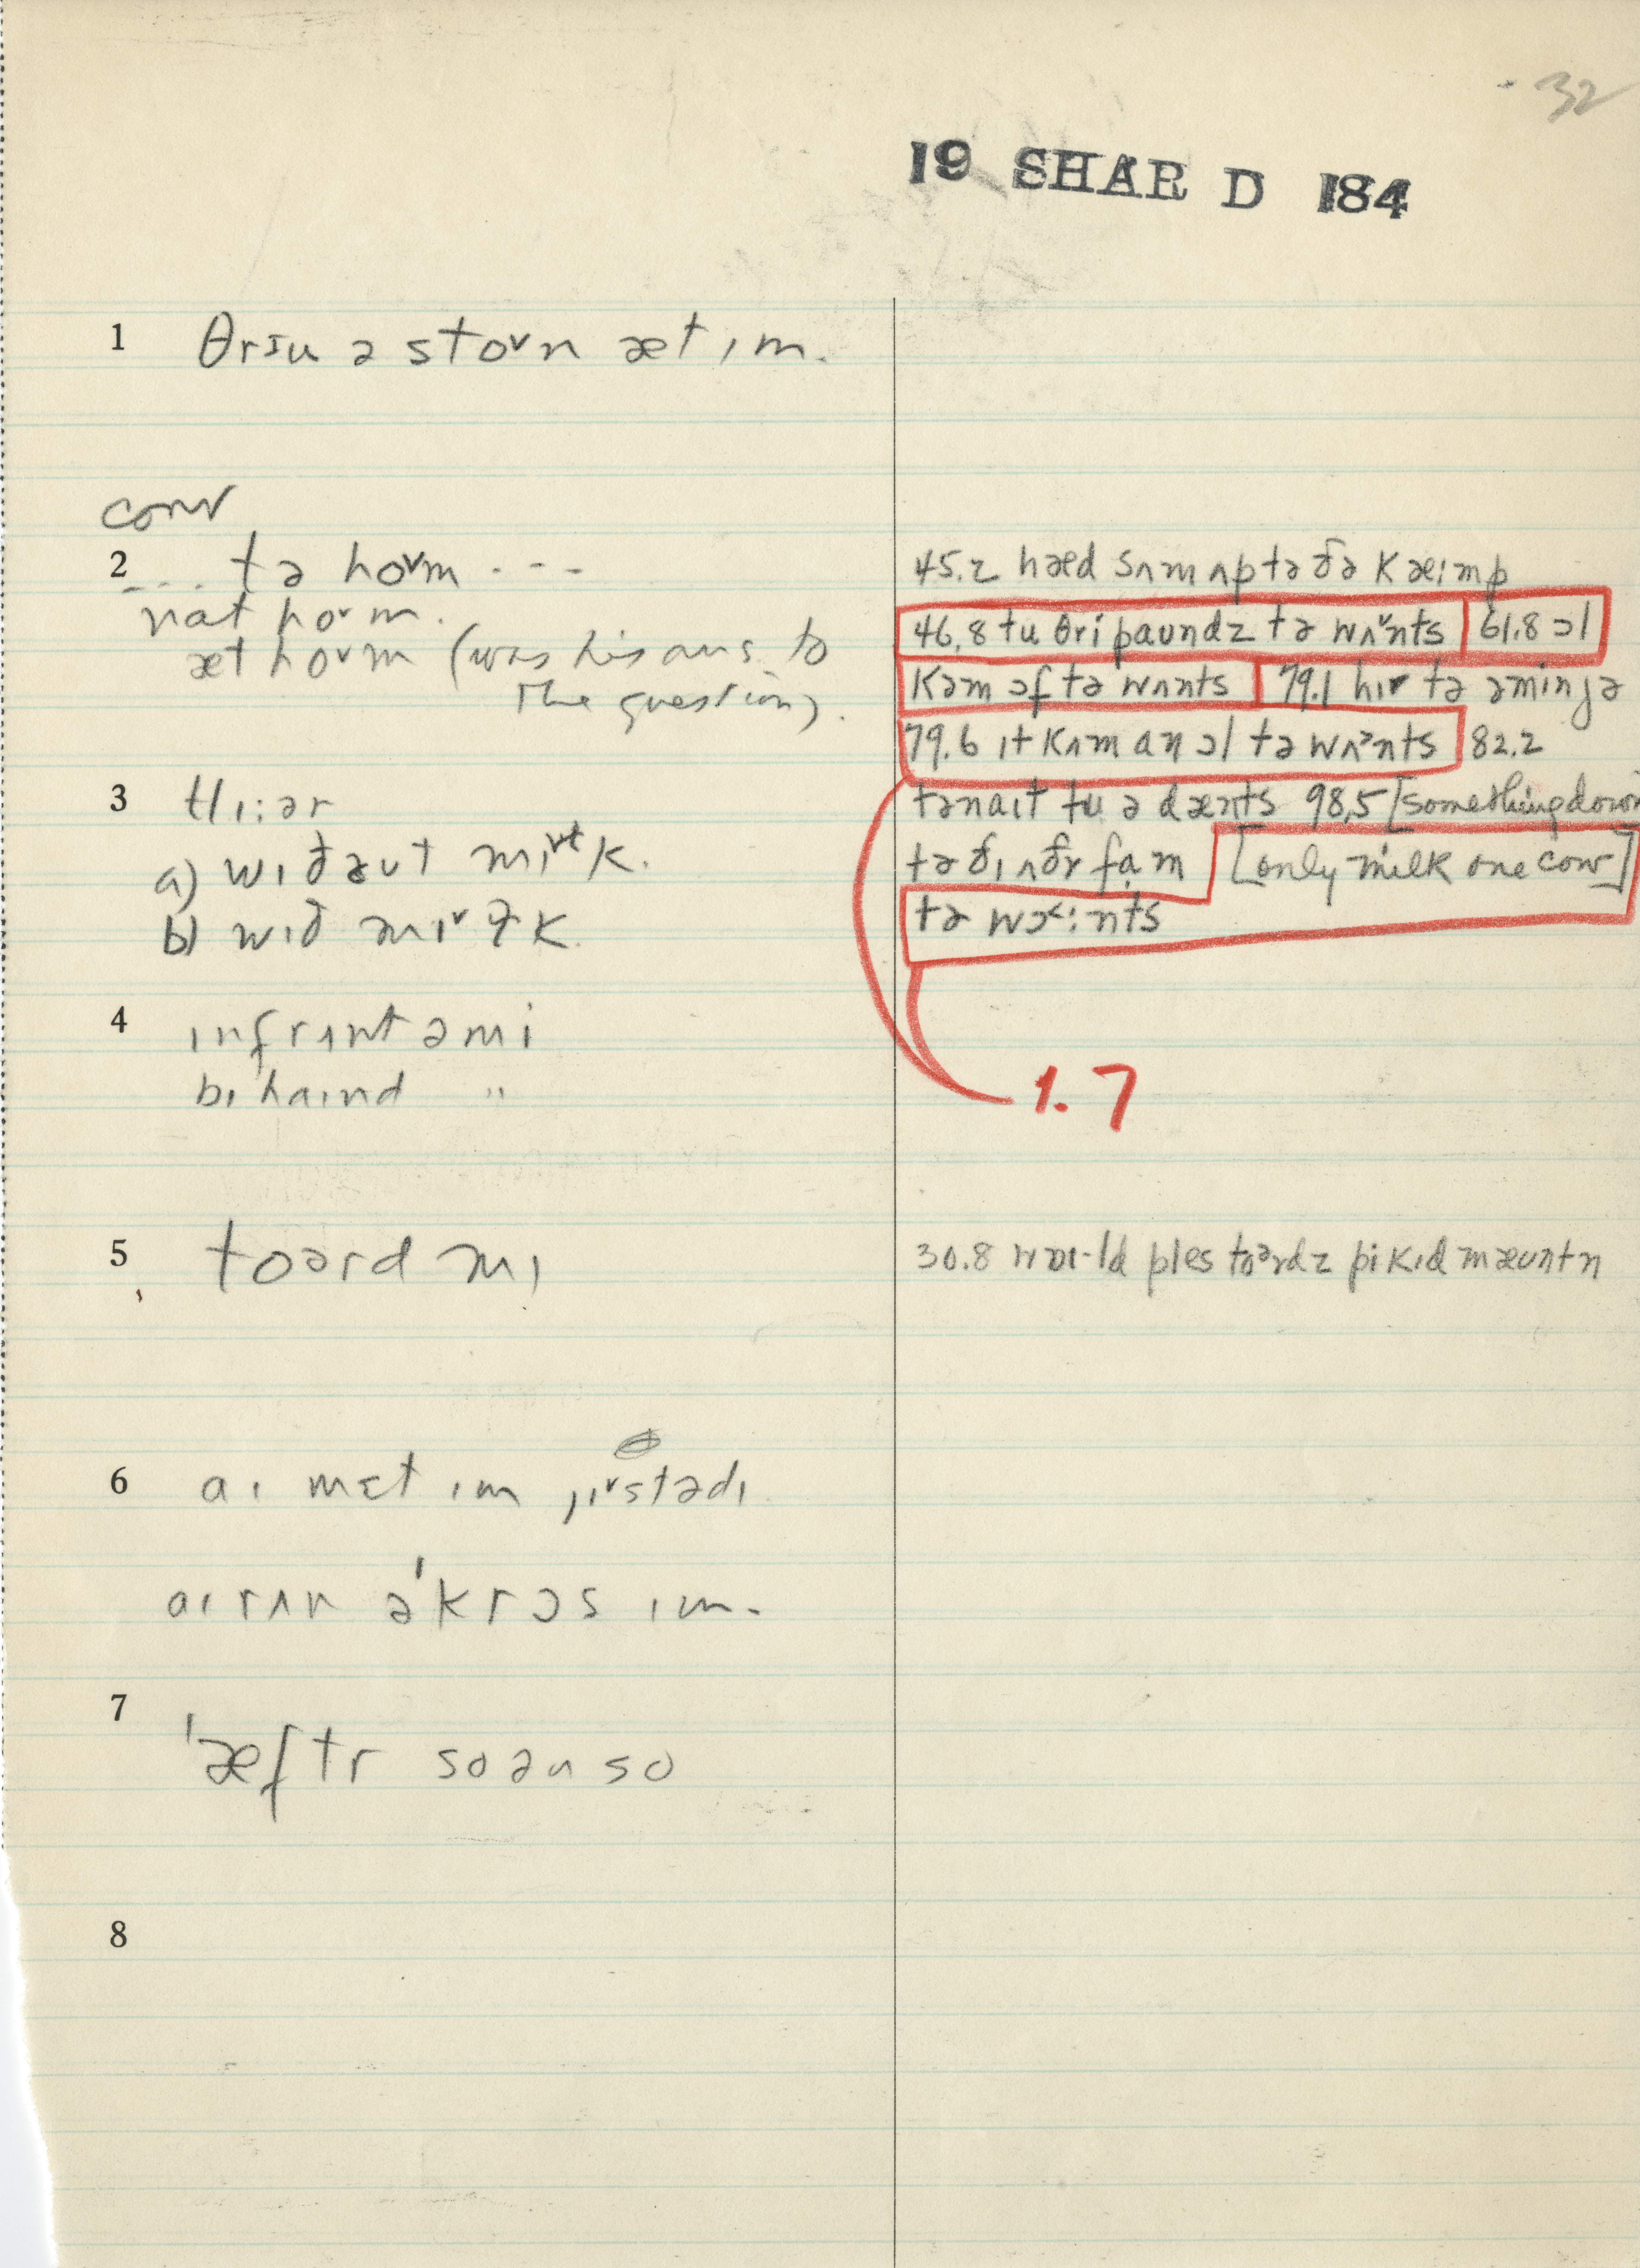 32
19 SHAR D 184
1 θrɪu ə stoᵛn æt ɪm.
conv
2 ... tə hoᵛm ---
nat hoᵛm.
æt hoᵛm (was his ans to
the question).
3 tlɪ:ər
a) wɪðəut mɪᵛɫk.
b) wɪð mɪᵛɫk.
4 ɪnfrʌnt ə mi
bɪhaɪnd "
5 toərd mɪ
6 aɪ mɛt ɪm jɪᵛstədɪ
aɪ rʌn ə'krɔs ɪm.
7 'æftr so ən so
8
45.2 hæd sʌm ʌp tə ðə kæɪmp
46.8 tu θri paundz tə wʌᵛnts 61.8 ɔl
kəm ɔf tə wʌnts 79.1 hɪr tə əminjə
79.6 ɪt kʌm aŋ ɔl tə wʌᵊnts 82.2
tənaɪt tu ə dænts 98.5 [something down
tə ðɪ ʌðr fam [only milk one cow]
tə wɔ˂:nts
1.7
30.8 ples toᵊrdz pikɪd mæʊntn